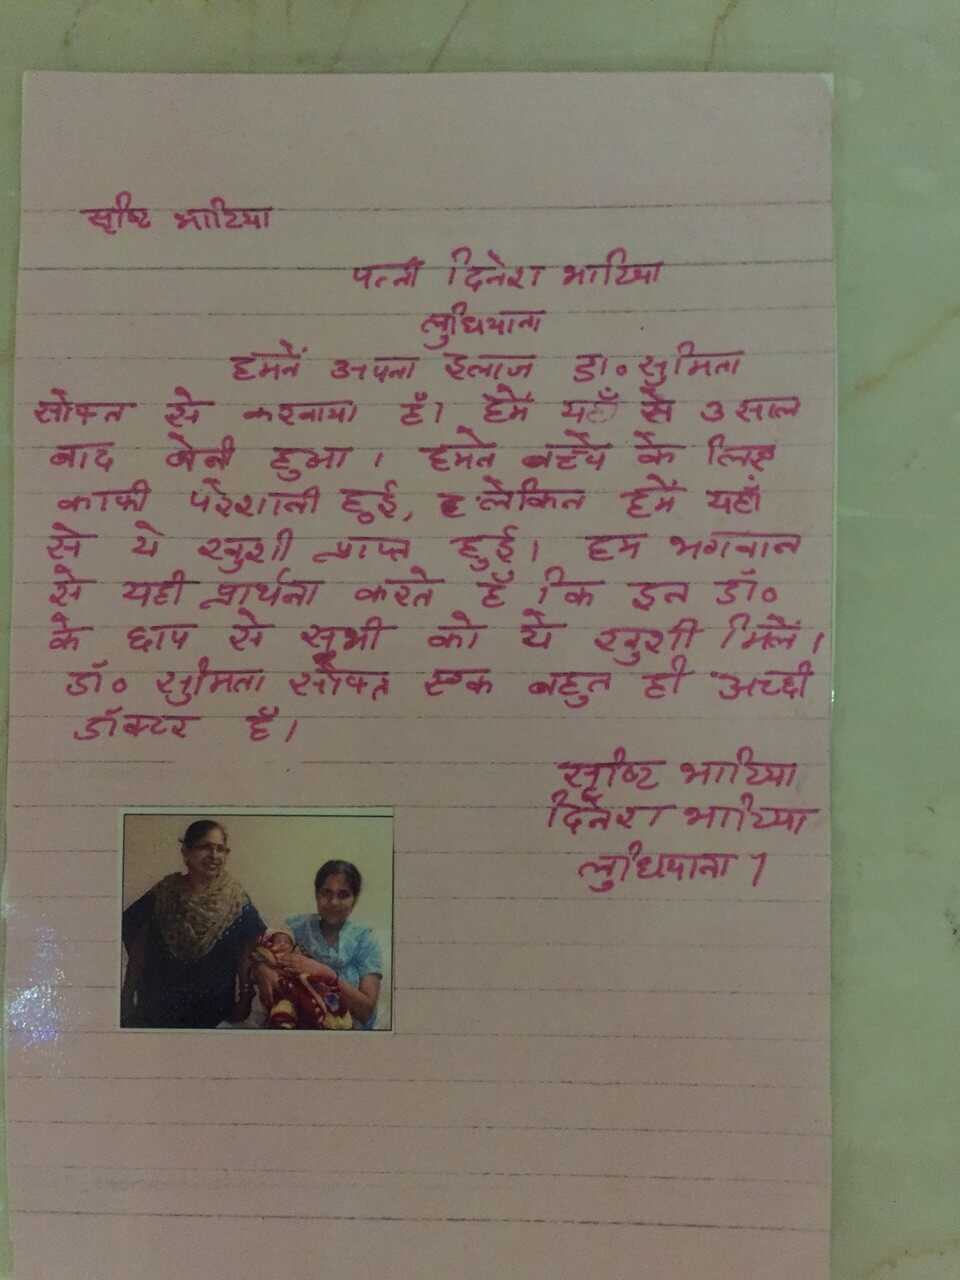 सृष्टि भाटिया
पत्नी दिनेश भाटिया
लुधियाना
हमनें अपना इलाज डा॰ सुमिता
सोफ्त से करवाया हैं। हमें यहाँ से 3 साल
बाद बेबी हुआ। हमने बच्चे के लिए
काफी परेशानी हुई, लेकिन हमें यहाँ
से ये खुशी प्राप्त हुई। हम भगवान
से यही प्रार्थना करते हैं कि इन डॉ॰
के हाथ से सभी को ये खुशी मिलें।
डॉ॰ सुमिता सोफ्त एक बहुत ही अच्छी
डॉक्टर हैं।
सृष्टि भाटिया
दिनेश भाटिया
लुधियाना।